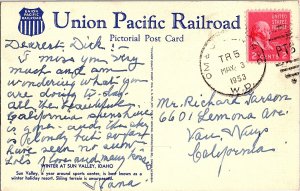 Union Pacific Railroad
Pictorial Post Card
Dearest Dick:
I miss you very
much and am
wondering what you
are doing to-day.
All the beautiful
California sunshine
is gone and the sky
is cloudy but so far
have seen no snow
love and many
Nana
WINTER AT SUN VALLEY, IDAHO
Sun Valley, a year around sports center, is best known as a
winter holiday resort. Skiing terrain is unsurpassed.
OMAHA
TR 5
MAR 3
1953
R.P.O.
2 CENTS 2
Mr. Richard Larson
6601 Lemona Ave.
Van Nuys
California